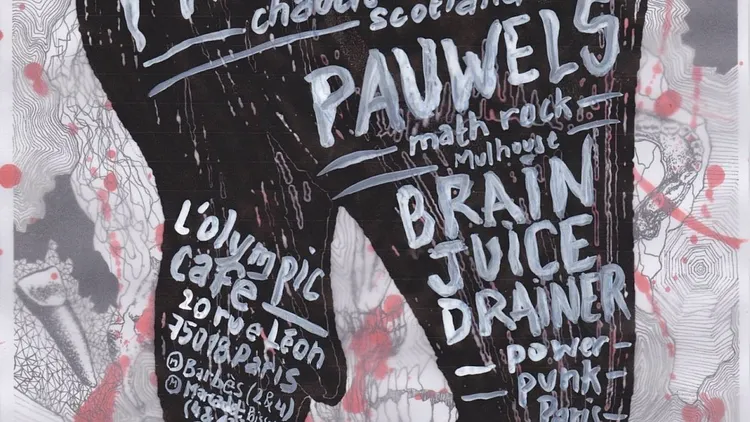 scotland
PAUWELS
math rock
Mulhouse
BRAIN
JUICE
DRAINER
power
punk
Paris
L'olympic
café
20 rue Léon
75018 Paris
Ⓜ Barbès (2&4)